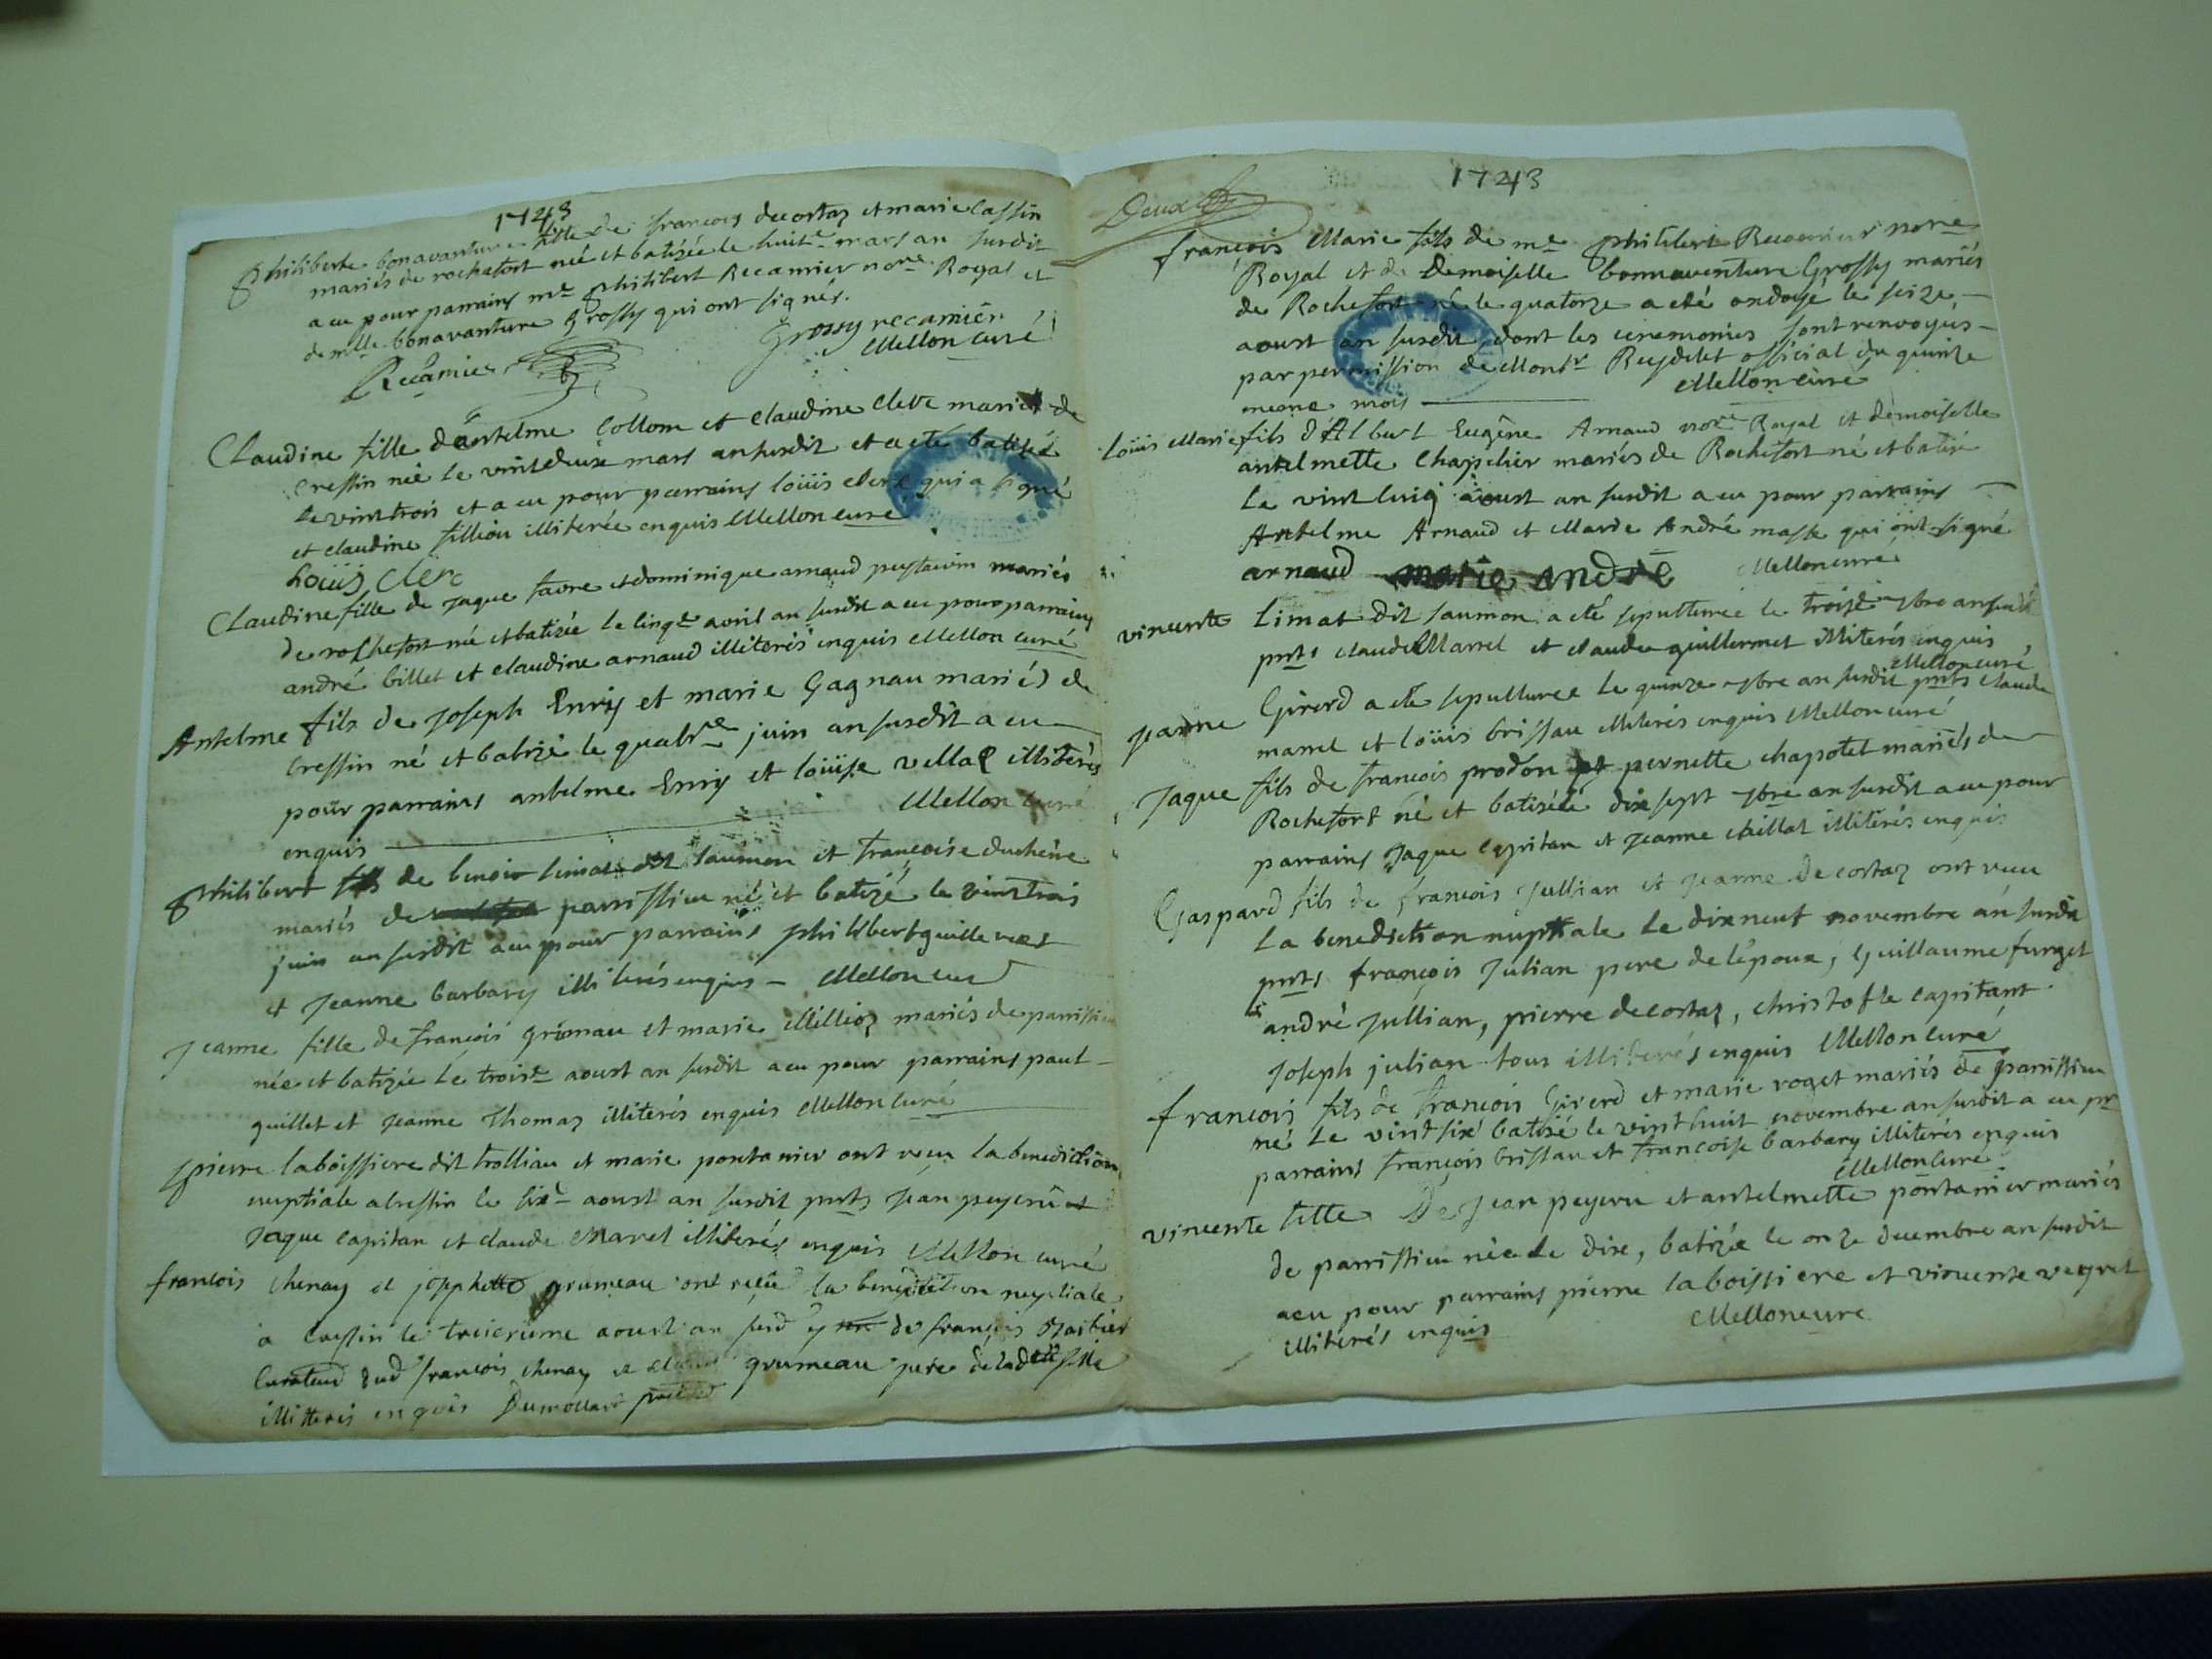 1743
philiberte bonavanture fille de francois decortaz et marie Cassin
mariés de rochefort née et batisée le huite mars an susdit
a eu pour parrains me philibert Recamier nore Royal et
demlle bonavanture grossy qui ont signés.
grossy recamier
Recamier
Mellon curé
Claudine fille d'antelme Collom et Claudine Clerc mariés de
Cressin née le vintdeux mars an susdit et a eté batisée
le vinttrois et a eu pour parrains loüis clerc qui a signé
et claudine fillion illiterée enquis Mellon curé
Loüis Clerc
Claudine fille de jaque favre et dominique arnaud mariés
de rochefort née et batisée le cinqe avril an susdit a eu pour parrains
andré billet et claudine arnaud illiterés enquis Mellon curé
Antelme fils de joseph Enrij et marie Gagnau mariés de
Cressin né et batizé le quatre juin an susdit a eu
pour parrains antelme Enrij et loüise villat illiterés
enquis
Mellon curé
philibert fils de benoit limat dit saumon et francoise duchêne
mariés de parrissieu né et batizé le vinttrois
juin an susdit a eu pour parrains philibert guillermet
et jeanne barbary illiterés enquis - Mellon curé
jeanne fille de francois grumau et marie Millioz mariés de parrissieu
née et batizée le troise aoust an susdit a eu pour parrains paul
guillet et jeanne Thomaz illiterés enquis Mellon curé
pierre laboissiere dit trollian et marie pontanier ont receu la benediction
nuptiale a Cressin le sixe aoust an susdit pnts jean peyeru et
jaque capitan et claude Marrel illiterés enquis Mellon curé
francois Chenay et josephette grumeau ont reçû la benediction nuptiale
a Cressin le treizieme aoust an susd de françois
Curateur dud francois chenay et grumeau pere de lad fille
illitterés enquis Dumollard
1743
Deux
françois Marie fils de me philibert Recamier nore
Royal et de Demoiselle bonnaventure Grossy mariés
de Rochefort né le quatorze a eté ondoyé le seize
aoust an susdit, dont les ceremonies sont renvoyées
par permission de Monsr Reydelet official du quinze
meme mois
Mellon curé
Loüis Marie fils d'Albert Eugêne Arnaud nore Royal et demoiselle
antelmette Chapelier mariés de Rochefort né et batizé
le vint cinq aoust an susdit a eu pour parrains
Antelme Arnaud et Marie André masse qui ont signé
arnaud marie andrè Mellon curé
vincente limat dit saumon a eté sepulturée le troise 7bre an susdit
pnts claude Marrel et claude guillermet illiterés enquis
Mellon curé
jeanne Girerd a eté sepulturee le quinze 7bre an susdit pnts claude
marrel et loüis brissau illiterés enquis Mellon curé
jaque fils de francois prodon et pernette chapotet mariés de
Rochefort né et batizé le dix sept 7bre an susdit a eu pour
parrains jaque capitan et jeanne Maillat illiterés enquis
Gaspard fils de françois jullian et jeanne Decortaz ont receu
la benediction nuptiale le dixneuf novembre an susdit
pnts françois Julian pere de l'époux, guillaume furget
andré jullian, pierre decortaz, christofle capitant
joseph julian tous illiterés enquis Mellon curé
françois fils de francois Girerd et marie roget mariés de parrissieu
né le vint six batizé le vint huit novembre an susdit a eu pr
parrains françois brissau et francoise barbary illiterés enquis
Mellon curé
vincente fille De jean peyeru et antelmette pontanier mariés
de parrissieu née le dix, batizée le onze decembre an susdit
a eu pour parrains pierre laboissiere et vincente veyret
illiterés enquis
Mellon curé